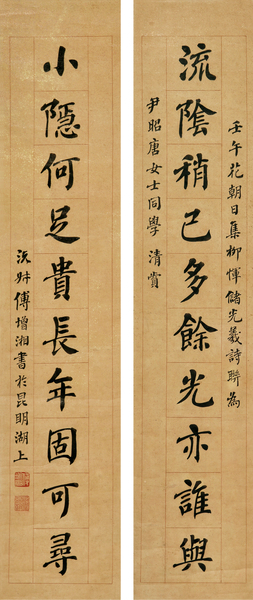 壬午花朝日集柳惲儲光羲詩聯為
流陰稍已多餘光亦誰與
尹昭唐女士同學 清賞
小隱何足貴長年固可尋
沅叔傅增湘書於昆明湖上